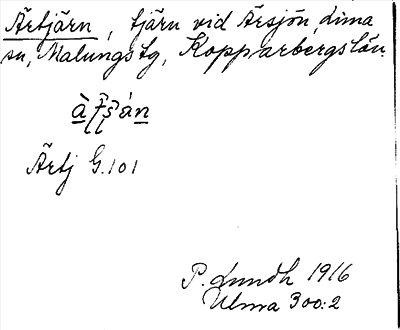 Ärtjärn, tjärn vid Ärsjön, Lima
sn, Malungs tg, Kopparbergs län.
Ärtj G.101
P. Lundh 1916
Ulma 300:2